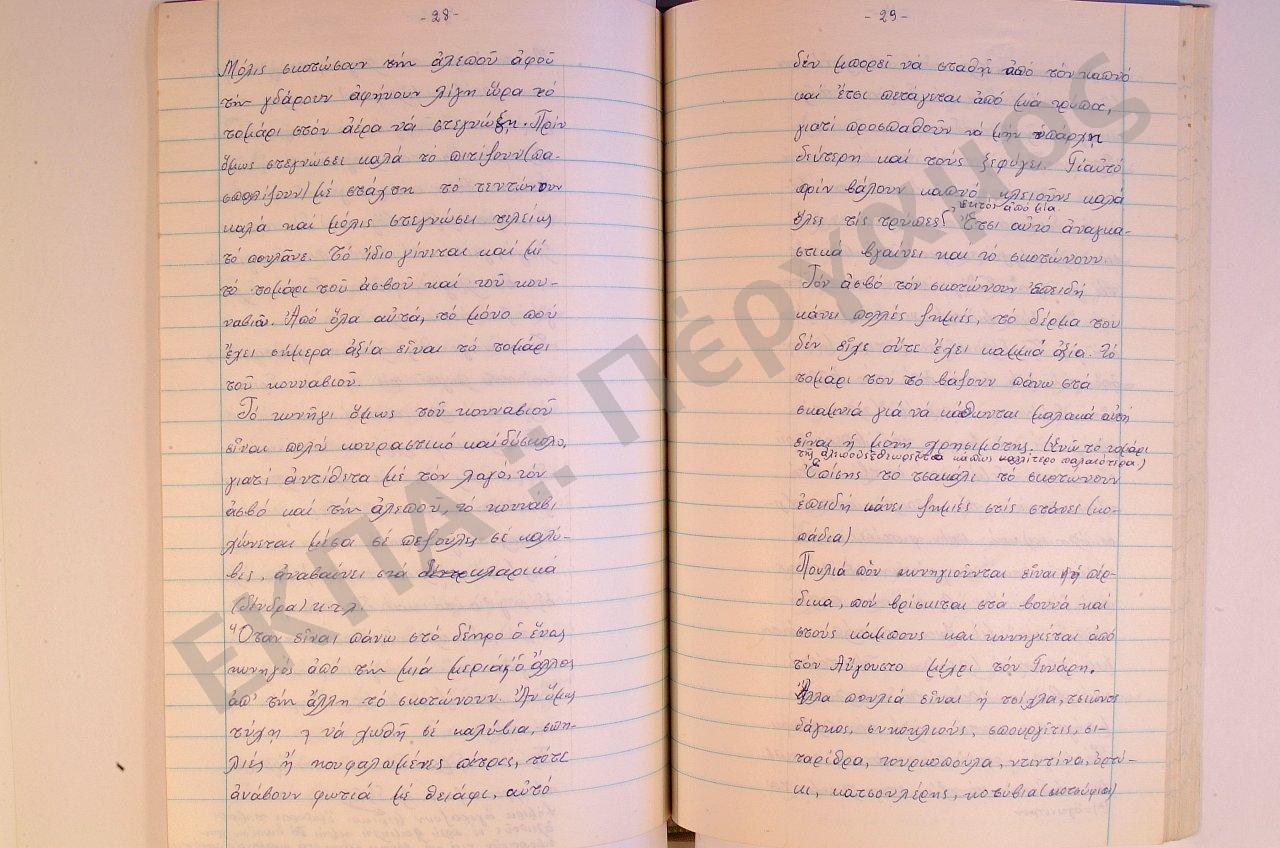 -28-
Μόλις σκοτώσουν τήν ἀλεποῦ ἀφοῦ
τήν γδάρουν ἀφήνουν λίγη ὥρα τό
τομάρι στόν ἀέρα νά στεγνώξη. Πρίν
ὅμως στεγνώσει καλά τό πιτίζουν (πα-
σπαλίζουν) μέ στάχτη τό τεντώνουν
καλά καί μόλις στεγνώσει τελείως
τό πουλᾶνε. Τό ἴδιο γίνεται καί μέ
τό τομάρι τοῦ ἀσβοῦ καί τοῦ κου-
ναβιοῦ. Ἀπό ὅλα αὐτά, τό μόνο πού
ἔχει σήμερα ἀξία εἶναι τό τομάρι
τοῦ κουναβιοῦ.
Τό κυνῆγι ὅμως τοῦ κουναβιοῦ
εἶναι πολύ κουραστικό καί δύσκολο,
γιατί ἀντίθετα μέ τόν λαγό, τόν
ἀσβό καί τήν ἀλεποῦ, τό κουνάβι
χώνεται μέσα σέ πεζοῦλες σέ καλύ-
βες, ἀναβαίνει στά κλαρικά
(δένδρα) κ.τ.λ.
Ὅταν εἶναι πάνω στό δέντρο ὁ ἕνας
κυνηγός ἀπό τήν μιά μεριά κ' ὁ ἄλλος
ἀπ' τήν ἄλλη τό σκοτώνουν. Ἄν ὅμως
τύχη νά χωθῆ σέ καλύβια, σπη-
λιές ἤ κουφαλωμένες πέτρες, τότε
ἀνάβουν φωτιά μέ θειάφι, αὐτό
-29-
δέν μπορεῖ νά σταθῆ ἀπό τόν καπνό
καί ἔτσι πετάγεται ἀπό μιά τρύπα,
γιατί προσπαθοῦν νά μήν ὑπάρχη
δεύτερη καί τούς ξεφύγει. Γι' αὐτό
πρίν βάλουν καπνό κλειοῦνε καλά
ἐκτός ἀπό μία
ὅλες τίς τρύπες. Ἔτσι αὐτό ἀναγκα-
στικά βγαίνει καί τό σκοτώνουν.
Τόν ἀσβό τόν σκοτώνουν ἐπειδή
κάνει πολλές ζημιές, τό δέρμα του
δέν εἶχε οὔτε ἔχει καμμιά ἀξία. Τό
τομάρι του τό βάζουν πάνω στά
σκαμνιά γιά νά κάθωνται μαλακά αὐτή
εἶναι ἡ μόνη χρησιμότης. (Ἐνῶ τό τομάρι
τῆς ἀλεποῦς ἐθεωρεῖτο κάπως καλλίτερο παλαιότερα.)
Ἐπίσης τό τσακάλι τό σκοτώνουν
ἐπειδή κάνει ζημιές στίς στάνες (κο-
πάδια)
Πουλιά πού κυνηγιοῦνται εἶναι ἡ πέρ-
δικα, πού βρίσκεται στά βουνά καί
στούς κάμπους καί κυνηγιέται ἀπό
τόν Αὔγουστο μέχρι τόν Γενάρη.
Ἄλλα πουλιά εἶναι ἡ τσίχλα, τσιῶνος
δάγκος, συκοκλιούς, σπουργίτις, σι-
ταρίδρα, τουρκοπούλα, ντεντίνα, ὀρτύ-
κι, κατσουλέρης, κοτσύβια (κοτσύφια)
ΕΚΠΑ :: Πέργαμος